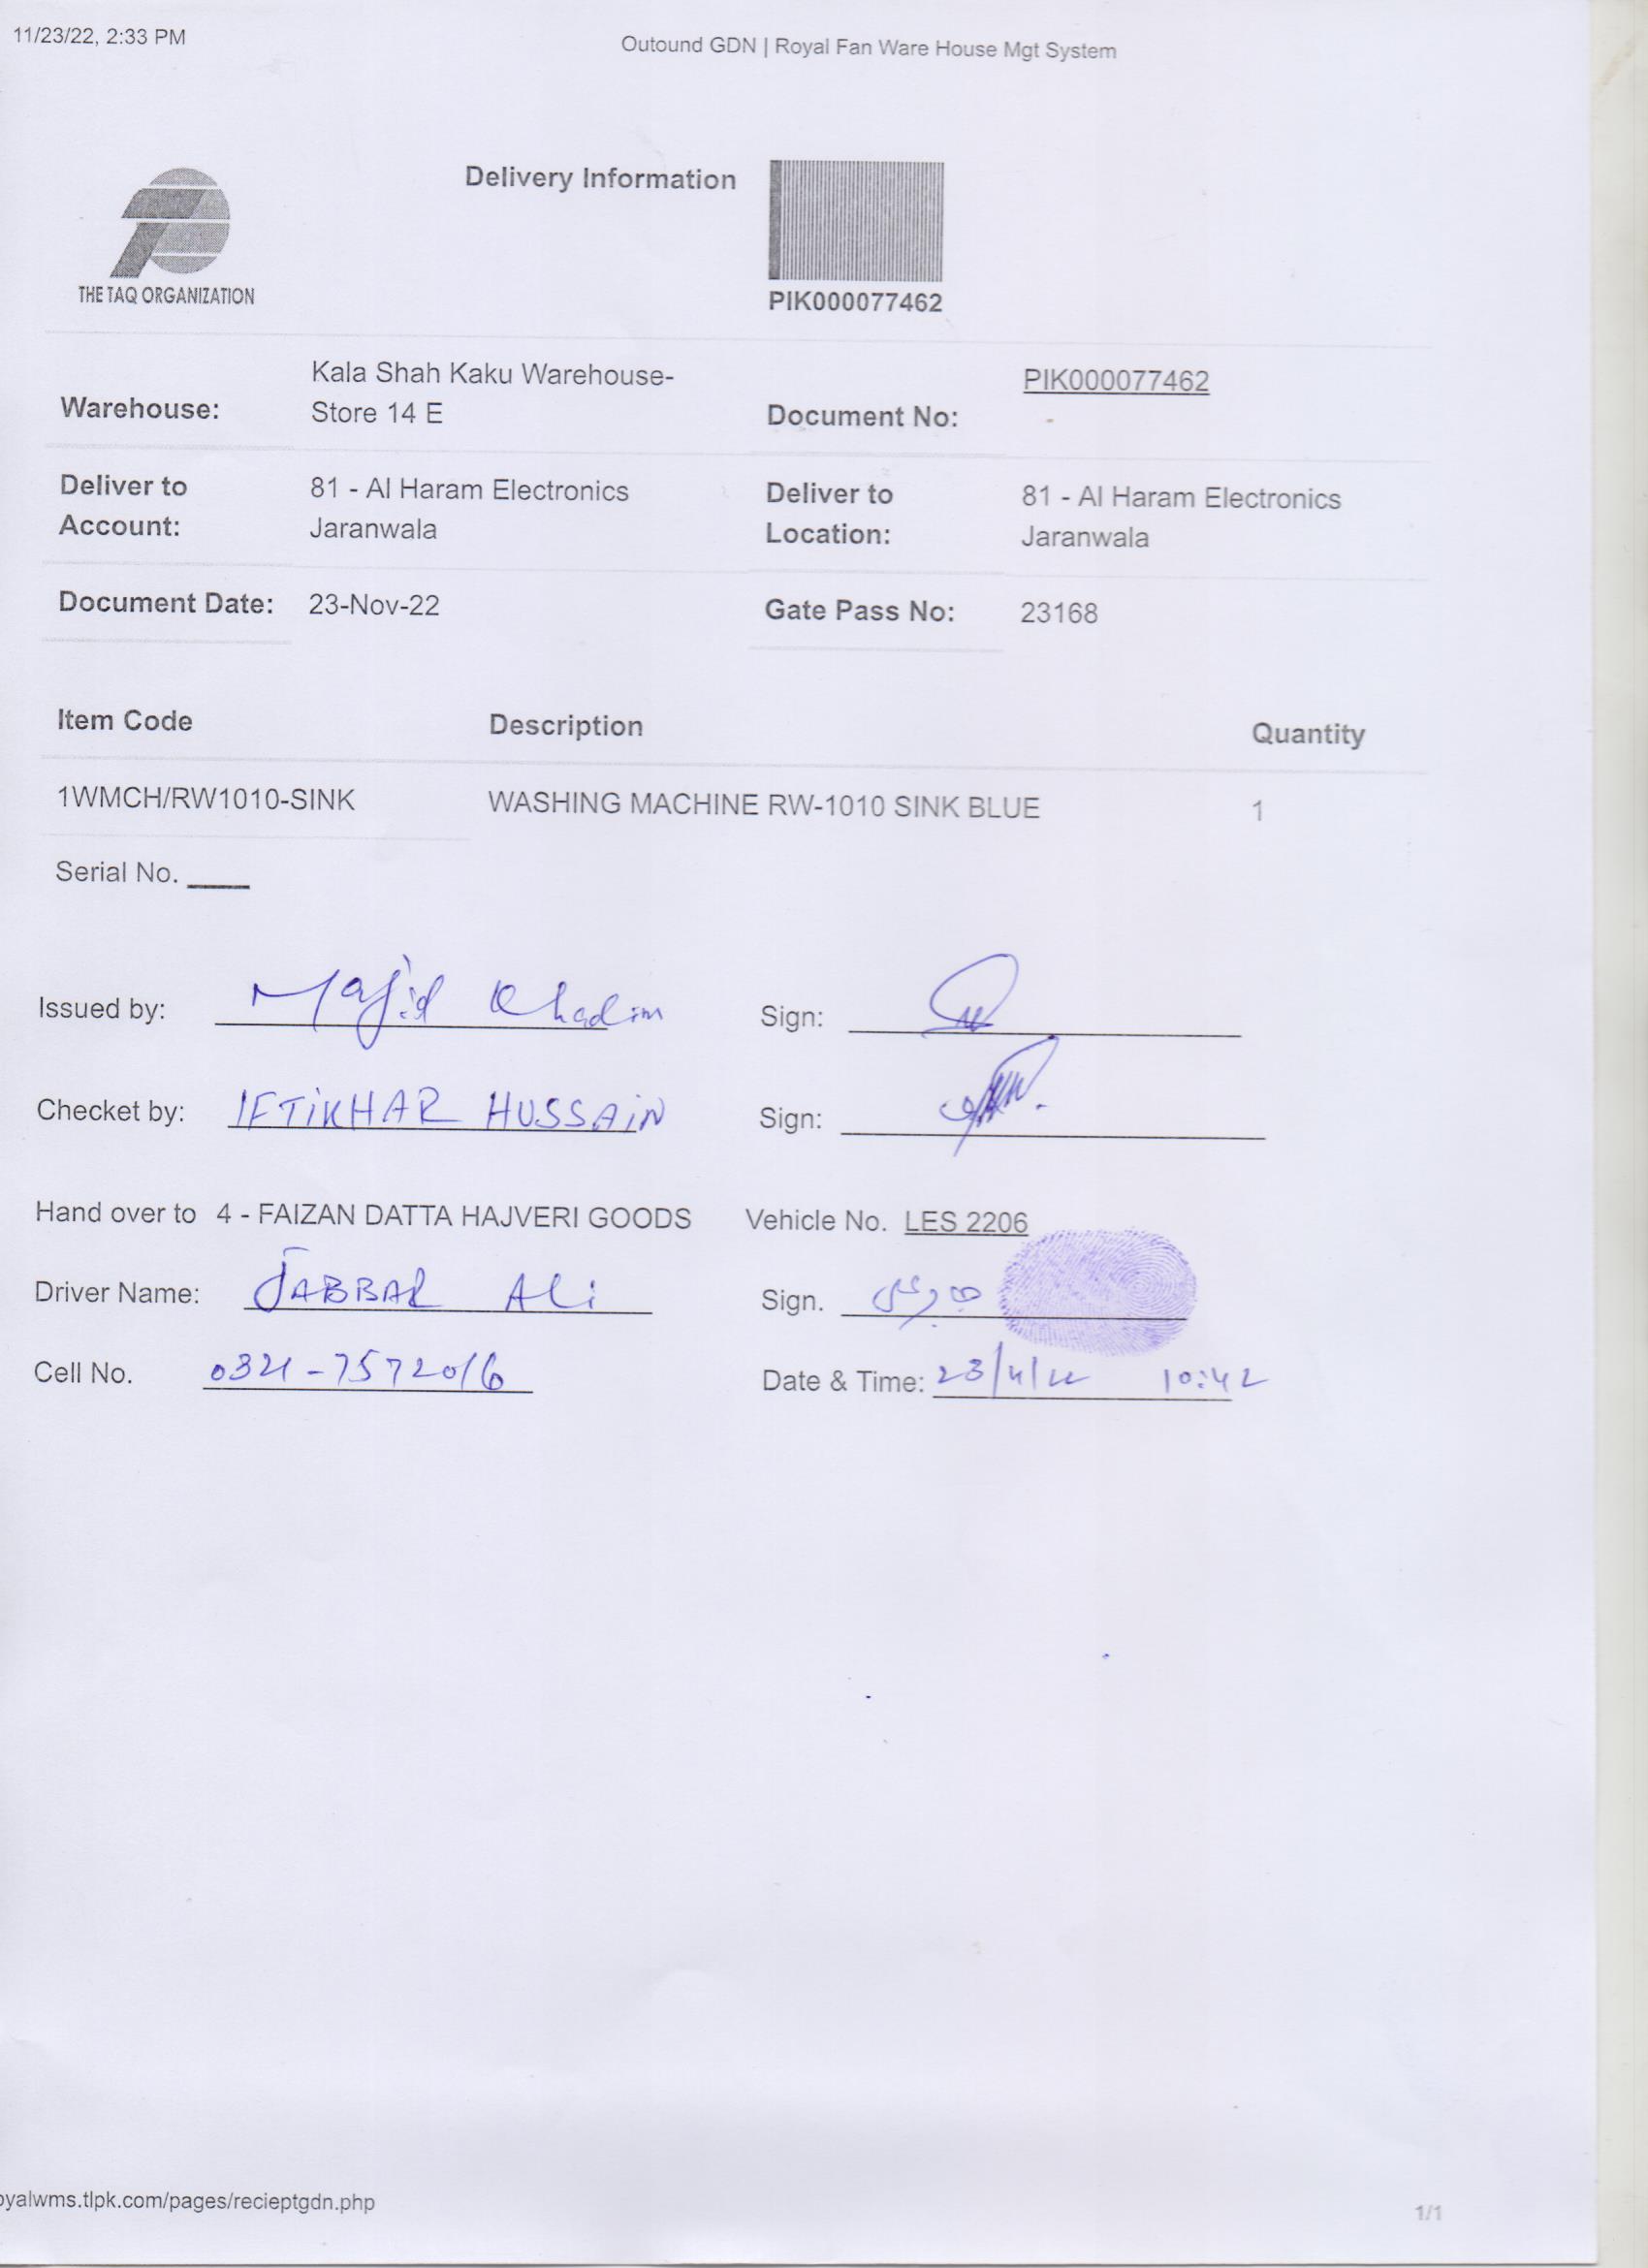 11/23/22, 2:33 PM
Outound GDN | Royal Fan Ware House Mgt System
Delivery Information
THE TAQ ORGANIZATION
PIK000077462
Warehouse: Kala Shah Kaku Warehouse-
Store 14 E
Document No: PIK000077462
-
Deliver to
Account: 81 - Al Haram Electronics
Jaranwala
Deliver to
Location: 81 - Al Haram Electronics
Jaranwala
Document Date: 23-Nov-22
Gate Pass No: 23168
Item Code Description Quantity
1WMCH/RW1010-SINK WASHING MACHINE RW-1010 SINK BLUE 1
Serial No. ____
Issued by: Majid Khadim Sign:
Checket by: IFTiKHAR HUSSAiN Sign:
Hand over to 4 - FAIZAN DATTA HAJVERI GOODS Vehicle No. LES 2206
Driver Name: JABBAR ALi Sign.
Cell No. 0321-7572016 Date & Time: 23/11/22 10:42
oyalwms.tlpk.com/pages/recieptgdn.php
1/1